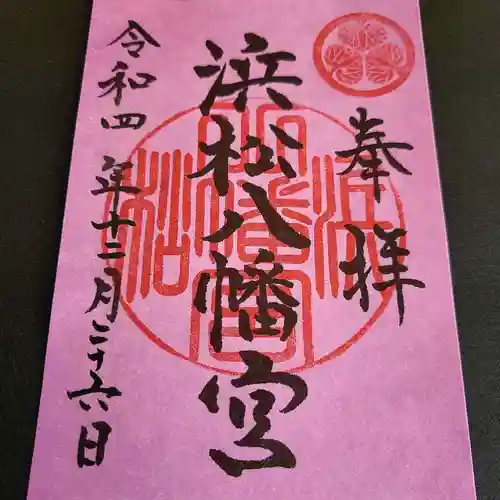 奉拝
浜松八幡宮
令和四年十二月二十六日